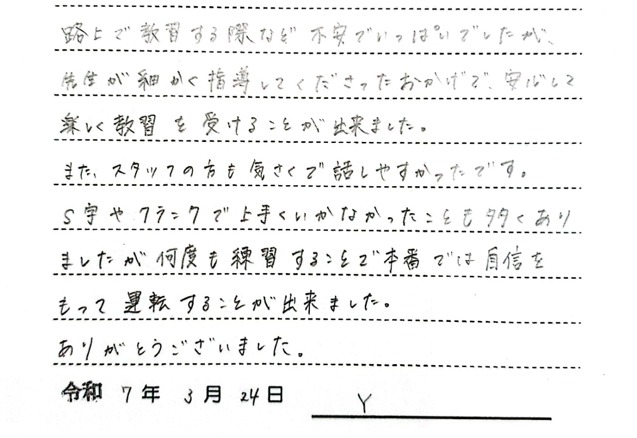 路上で教習する際など不安でいっぱいでしたが、
先生が細かく指導してくださったおかげで、安心して
楽しく教習を受けることが出来ました。
また、スタッフの方も気さくで話しやすかったです。
S字やクランクで上手くいかなかったことも多くあり
ましたが何度も練習することで本番では自信を
もって運転することが出来ました。
ありがとうございました。
令和 7年 3月 24日 Y